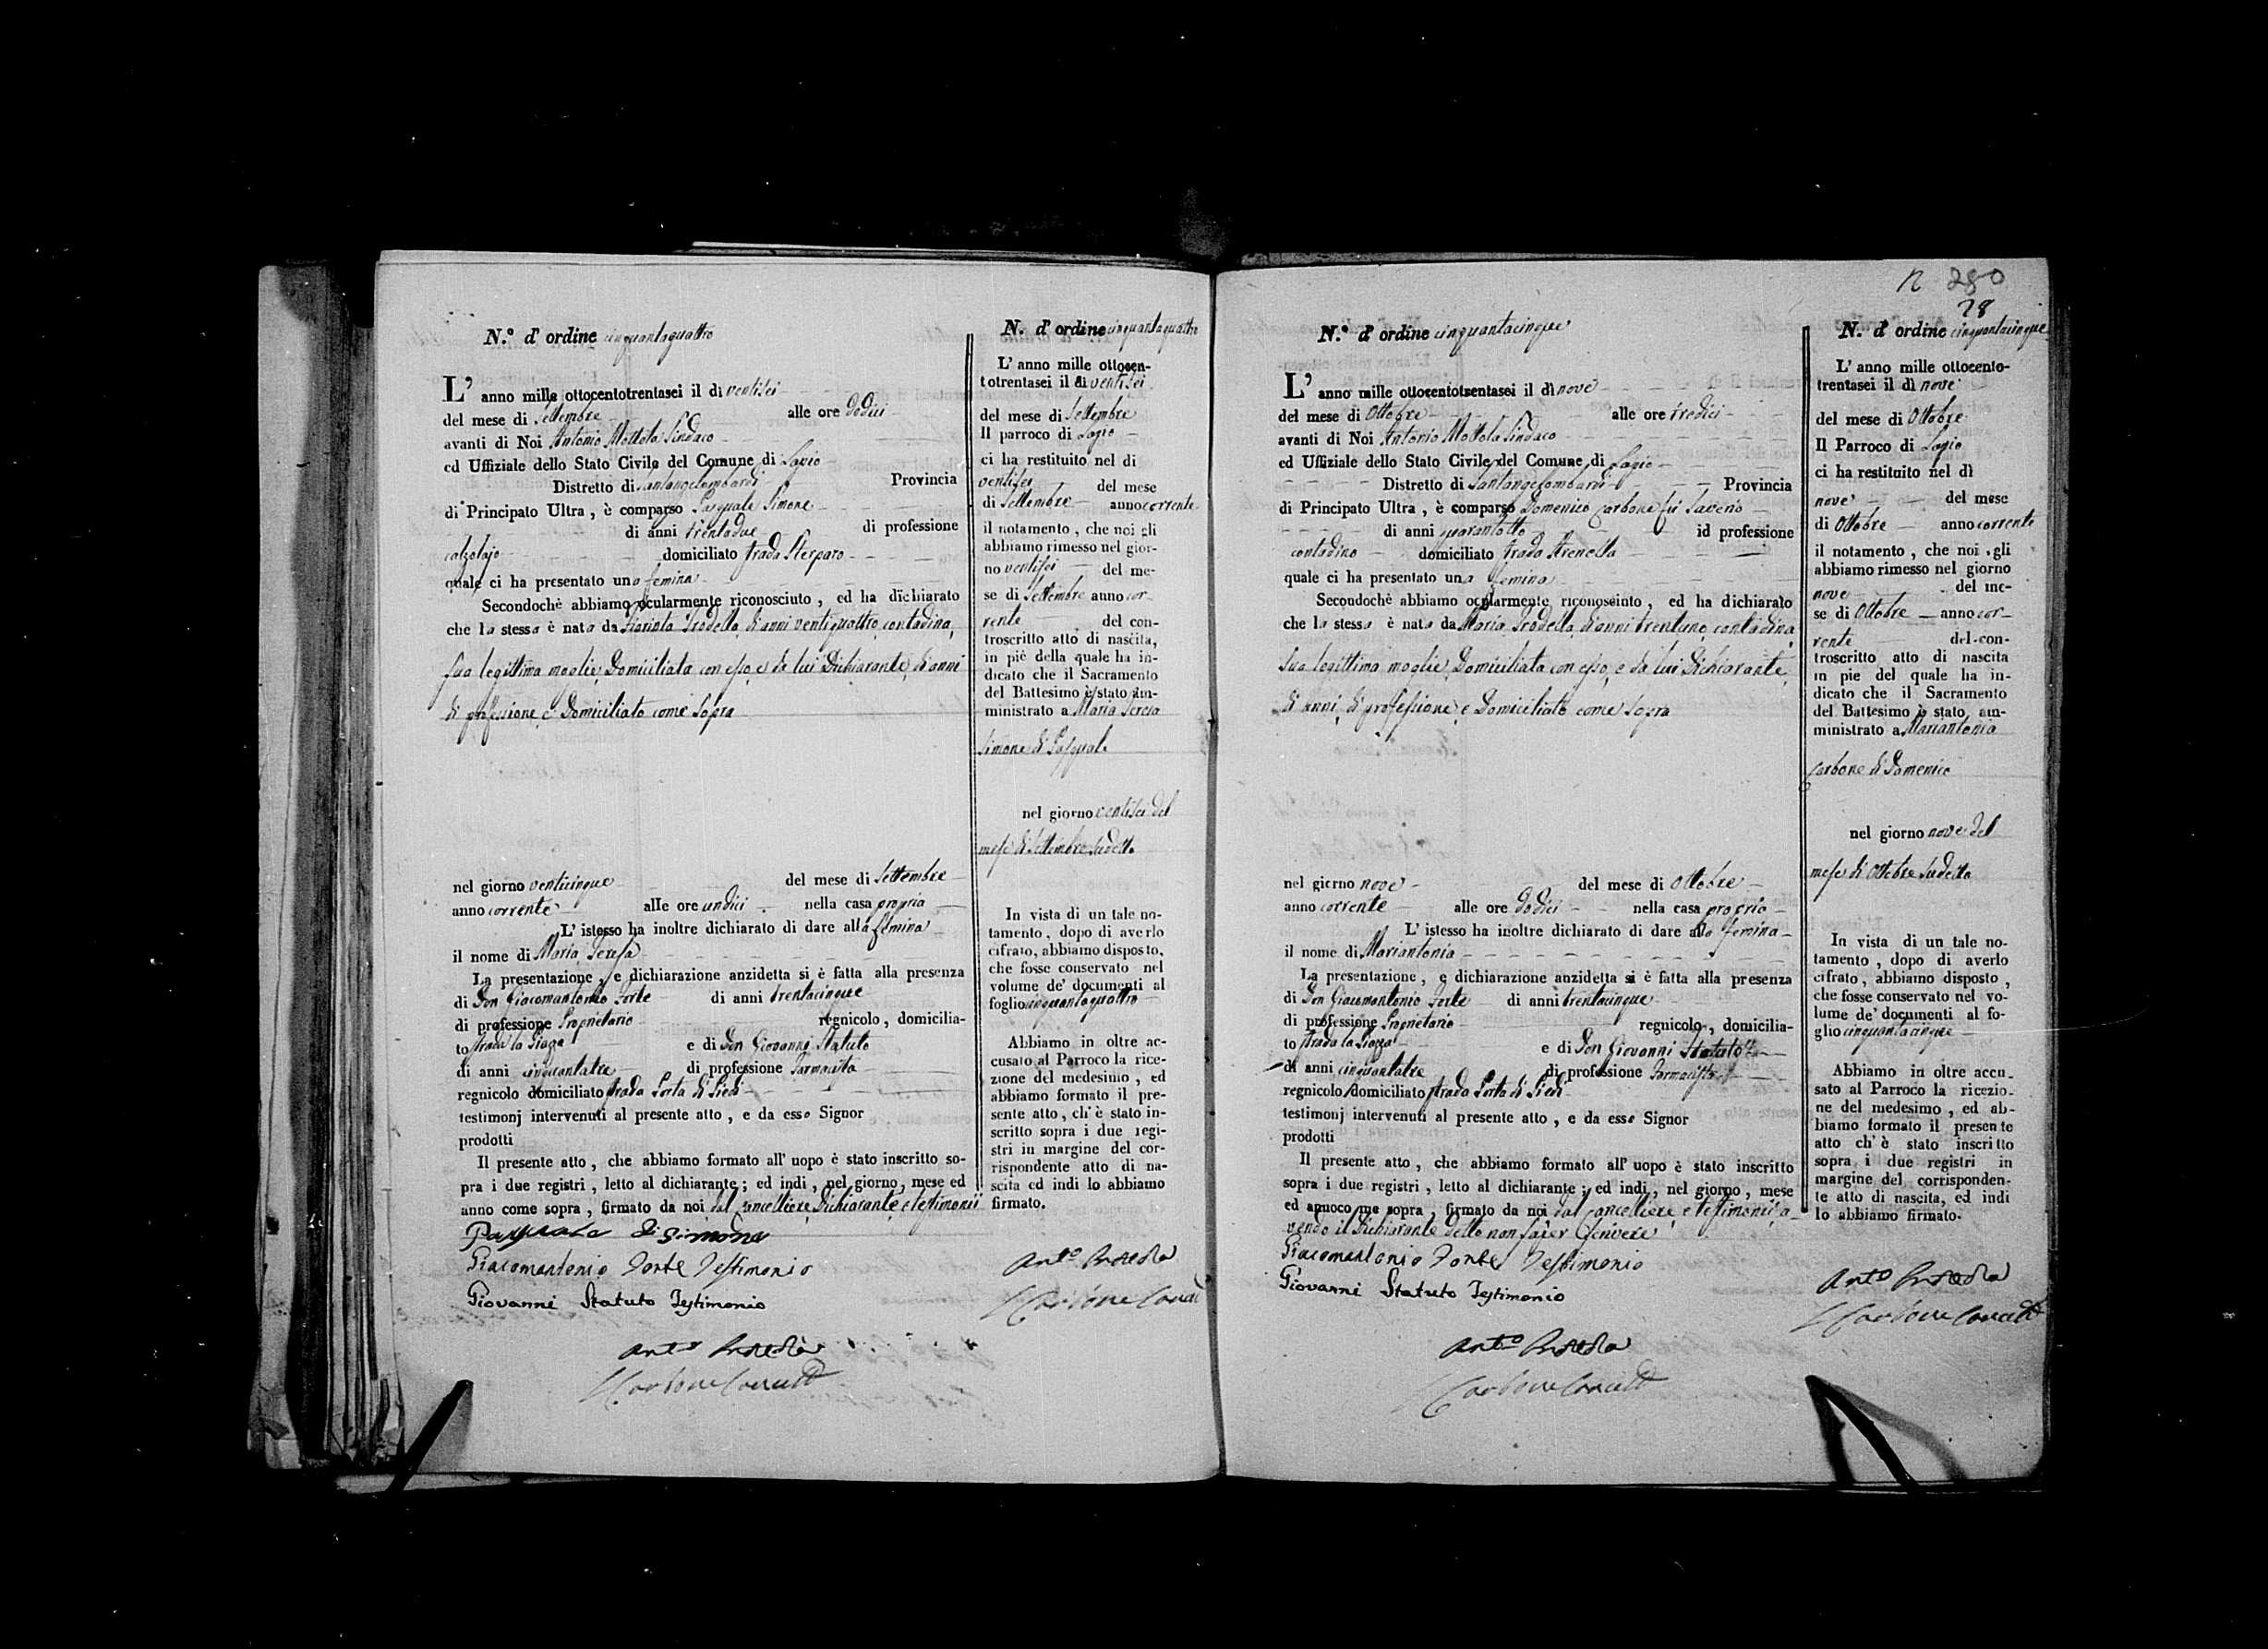 N.º d' ordine cinquantaquattro
L' anno mille ottocentotrentasei il dì ventisei
del mese di Settembre alle ore dodici
avanti di Noi Antonio Mottola Sindaco
ed Uffiziale dello Stato Civile del Comune di
Distretto di Santangelombardi Provincia
di Principato Ultra, è comparso Pasquale Simone
di anni trentadue di professione
calzolajo domiciliato strada Sterparo
quale ci ha presentato una femina
Secondochè abbiamo ocularmente riconosciuto, ed ha dichiarato
che la stessa è nata da Trodella, di anni ventiquattro, contadina,
sua legittima moglie, Domiciliata con esso, e da lui Dichiarante, di anni
di professione, e Domiciliato come sopra
nel giorno venticinque del mese di Settembre
anno corrente alle ore undici nella casa propria
L' istesso ha inoltre dichiarato di dare alla femina
il nome di Maria Teresa
La presentazione, e dichiarazione anzidetta si è fatta alla presenza
di Don Giacomantonio Forte di anni trentacinque
di professione Proprietario regnicolo, domicilia-
to strada la Piazza e di Don Giovanni Statuto
di anni cinquantatre di professione Farmacista
regnicolo domiciliato strada Porta di Piedi
testimonj intervenuti al presente atto, e da esso Signor
prodotti
Il presente atto, che abbiamo formato all' uopo è stato inscritto so-
pra i due registri, letto al dichiarante; ed indi, nel giorno, mese ed
anno come sopra, firmato da noi dal Cancelliere, Dichiarante, e testimonii
Pasquale di Simone
Giacomantonio Forte Testimonio
Giovanni Statuto Testimonio
Ant.º Mottola
Carbone Canc
N. d' ordine cinquantaquattro
L' anno mille ottocen-
totrentasei il dì ventisei
del mese di Settembre
Il parroco di
ci ha restituito nel di
ventisei del mese
di Settembre anno corrente
il notamento, che noi gli
abbiamo rimesso nel gior-
no ventisei del me-
se di Settembre anno cor-
rente del con-
troscritto atto di nascita,
in piè della quale ha in-
dicato che il Sacramento
del Battesimo è stato am-
ministrato a Maria Teresa
Simone di Pasquale
nel giorno ventisei del
mese di Settembre sudetto
In vista di un tale no-
tamento, dopo di averlo
cifrato, abbiamo disposto,
che fosse conservato nel
volume de' documenti al
foglio cinquantaquattro
Abbiamo in oltre ac-
cusato al Parroco la rice-
zione del medesimo, ed
abbiamo formato il pre-
sente atto, ch' è stato in-
scritto sopra i due regi-
stri in margine del cor-
rispondente atto di na-
scita ed indi lo abbiamo
firmato.
Ant.º Mottola
Carbone Canc
280
28
N.º d' ordine cinquantacinque
L' anno mille ottocentotrentasei il dì nove
del mese di Ottobre alle ore tredici
avanti di Noi Antonio Mottola Sindaco
ed Uffiziale dello Stato Civile del Comune di
Distretto di Santangelombardi Provincia
di Principato Ultra, è comparso Domenico Carbone fu Saverio
di anni quarantotto id professione
contadino domiciliato strada Arenella
quale ci ha presentato una femina
Secondochè abbiamo ocularmente riconosciuto, ed ha dichiarato
che la stessa è nata da Maria Trodella, di anni trentuno, contadina,
sua legittima moglie, Domiciliata con esso, e da lui Dichiarante,
di anni, di professione, e Domiciliato come sopra
nel giorno nove del mese di Ottobre
anno corrente alle ore dodici nella casa propria
L' istesso ha inoltre dichiarato di dare alla femina
il nome di Mariantonia
La presentazione, e dichiarazione anzidetta si è fatta alla presenza
di Don Giacomantonio Forte di anni trentacinque
di professione Proprietario regnicolo, domicilia-
to strada la Piazza e di Don Giovanni Statuto
di anni cinquantatre di professione Farmacista
regnicolo domiciliato strada Porta di Piedi
testimonj intervenuti al presente atto, e da esso Signor
prodotti
Il presente atto, che abbiamo formato all' uopo è stato inscritto
sopra i due registri, letto al dichiarante; ed indi, nel giorno, mese
ed annoco me sopra, firmato da noi dal Cancelliere, e testimonii, a-
vendo il Dichiarante detto non saper scrivere
Giacomantonio Forte Testimonio
Giovanni Statuto Testimonio
Ant.º Mottola
Carbone Canc
N. d' ordine cinquantacinque
L' anno mille ottocento-
trentasei il dì nove
del mese di Ottobre
Il Parroco di
ci ha restituito nel dì
nove del mese
di Ottobre anno corrente
il notamento, che noi gli
abbiamo rimesso nel giorno
nove del me-
se di Ottobre anno cor-
rente del con-
troscritto atto di nascita
in pie del quale ha in-
dicato che il Sacramento
del Battesimo è stato am-
ministrato a Mariantonia
Carbone di Domenico
nel giorno nove del
mese di Ottobre sudetto
In vista di un tale no-
tamento, dopo di averlo
cifrato, abbiamo disposto,
che fosse conservato nel vo-
lume de' documenti al fo-
glio cinquantacinque
Abbiamo in oltre accu-
sato al Parroco la ricezio-
ne del medesimo, ed ab-
biamo formato il presente
atto ch' è stato inscritto
sopra i due registri in
margine del corrisponden-
te atto di nascita, ed indi
lo abbiamo firmato.
Ant.º Mottola
Carbone Canc